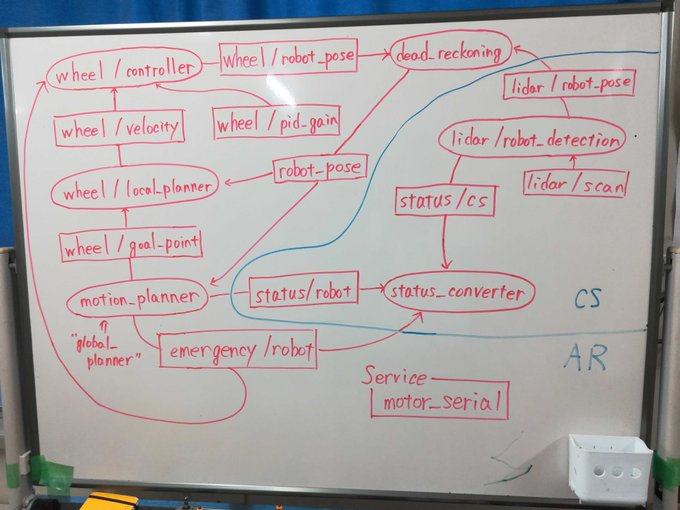 wheel/controller
wheel/robot_pose
dead_reckoning
lidar/robot_pose
wheel/velocity
wheel/pid_gain
lidar/robot_detection
robot_pose
wheel/local_planner
lidar/scan
status/cs
wheel/goal_point
motion_planner
status/robot
status_converter
CS
"global_
planner"
emergency/robot
AR
Service
motor_serial